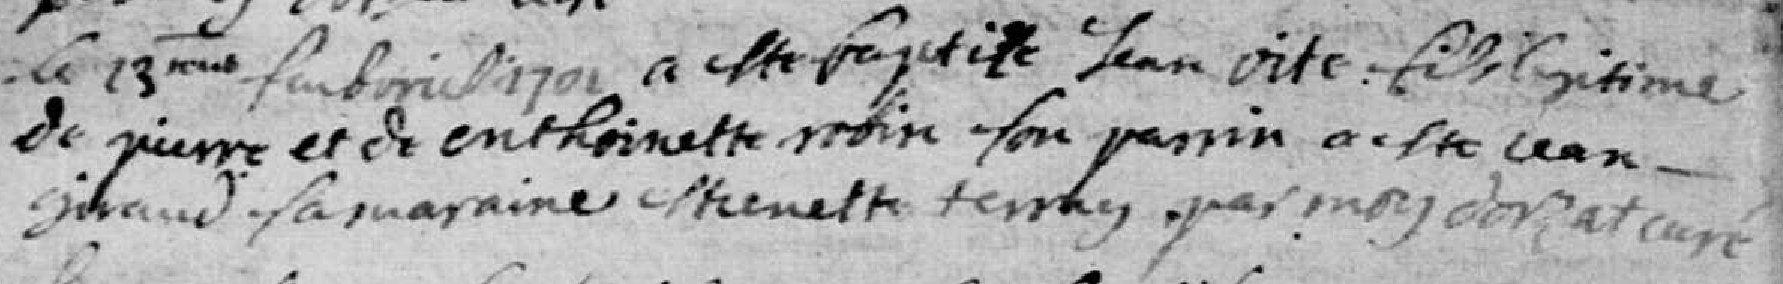 Le 13me 1702 a este baptize Jean vite fils legitime
de pierre et de enthoinette robin son parrin a este Jean
giraud sa maraine estienette terray par moy dorzat curé